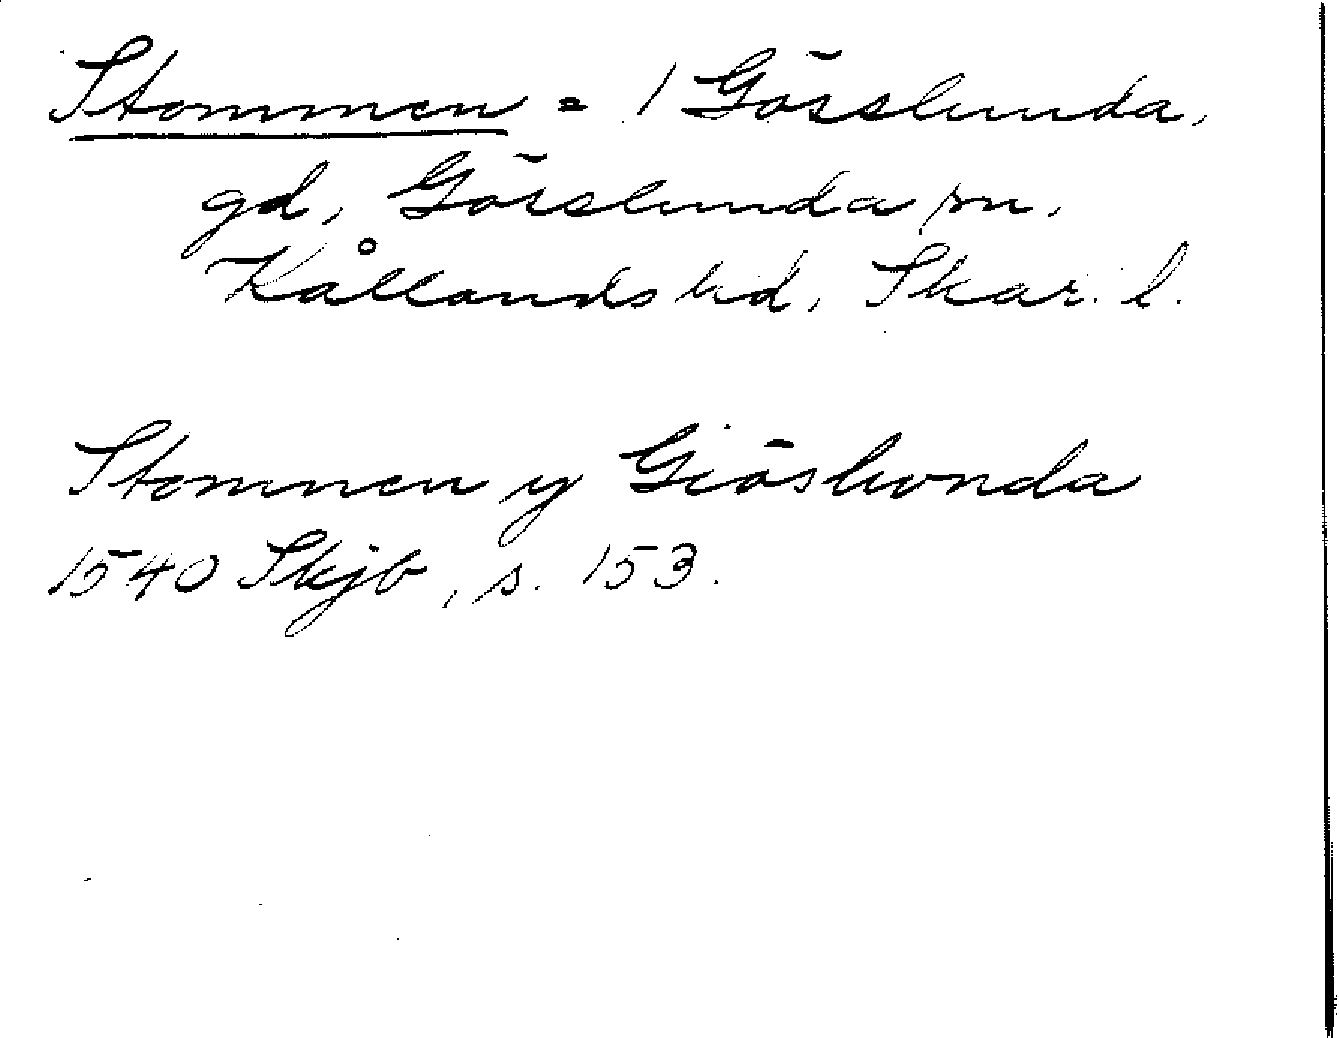 Stommen = 1 Gösslunda,
gd, Gösslunda sn,
Kållands hd, Skar. l.
Stommen y Giöslwnda
1540 Skjb, s. 153.